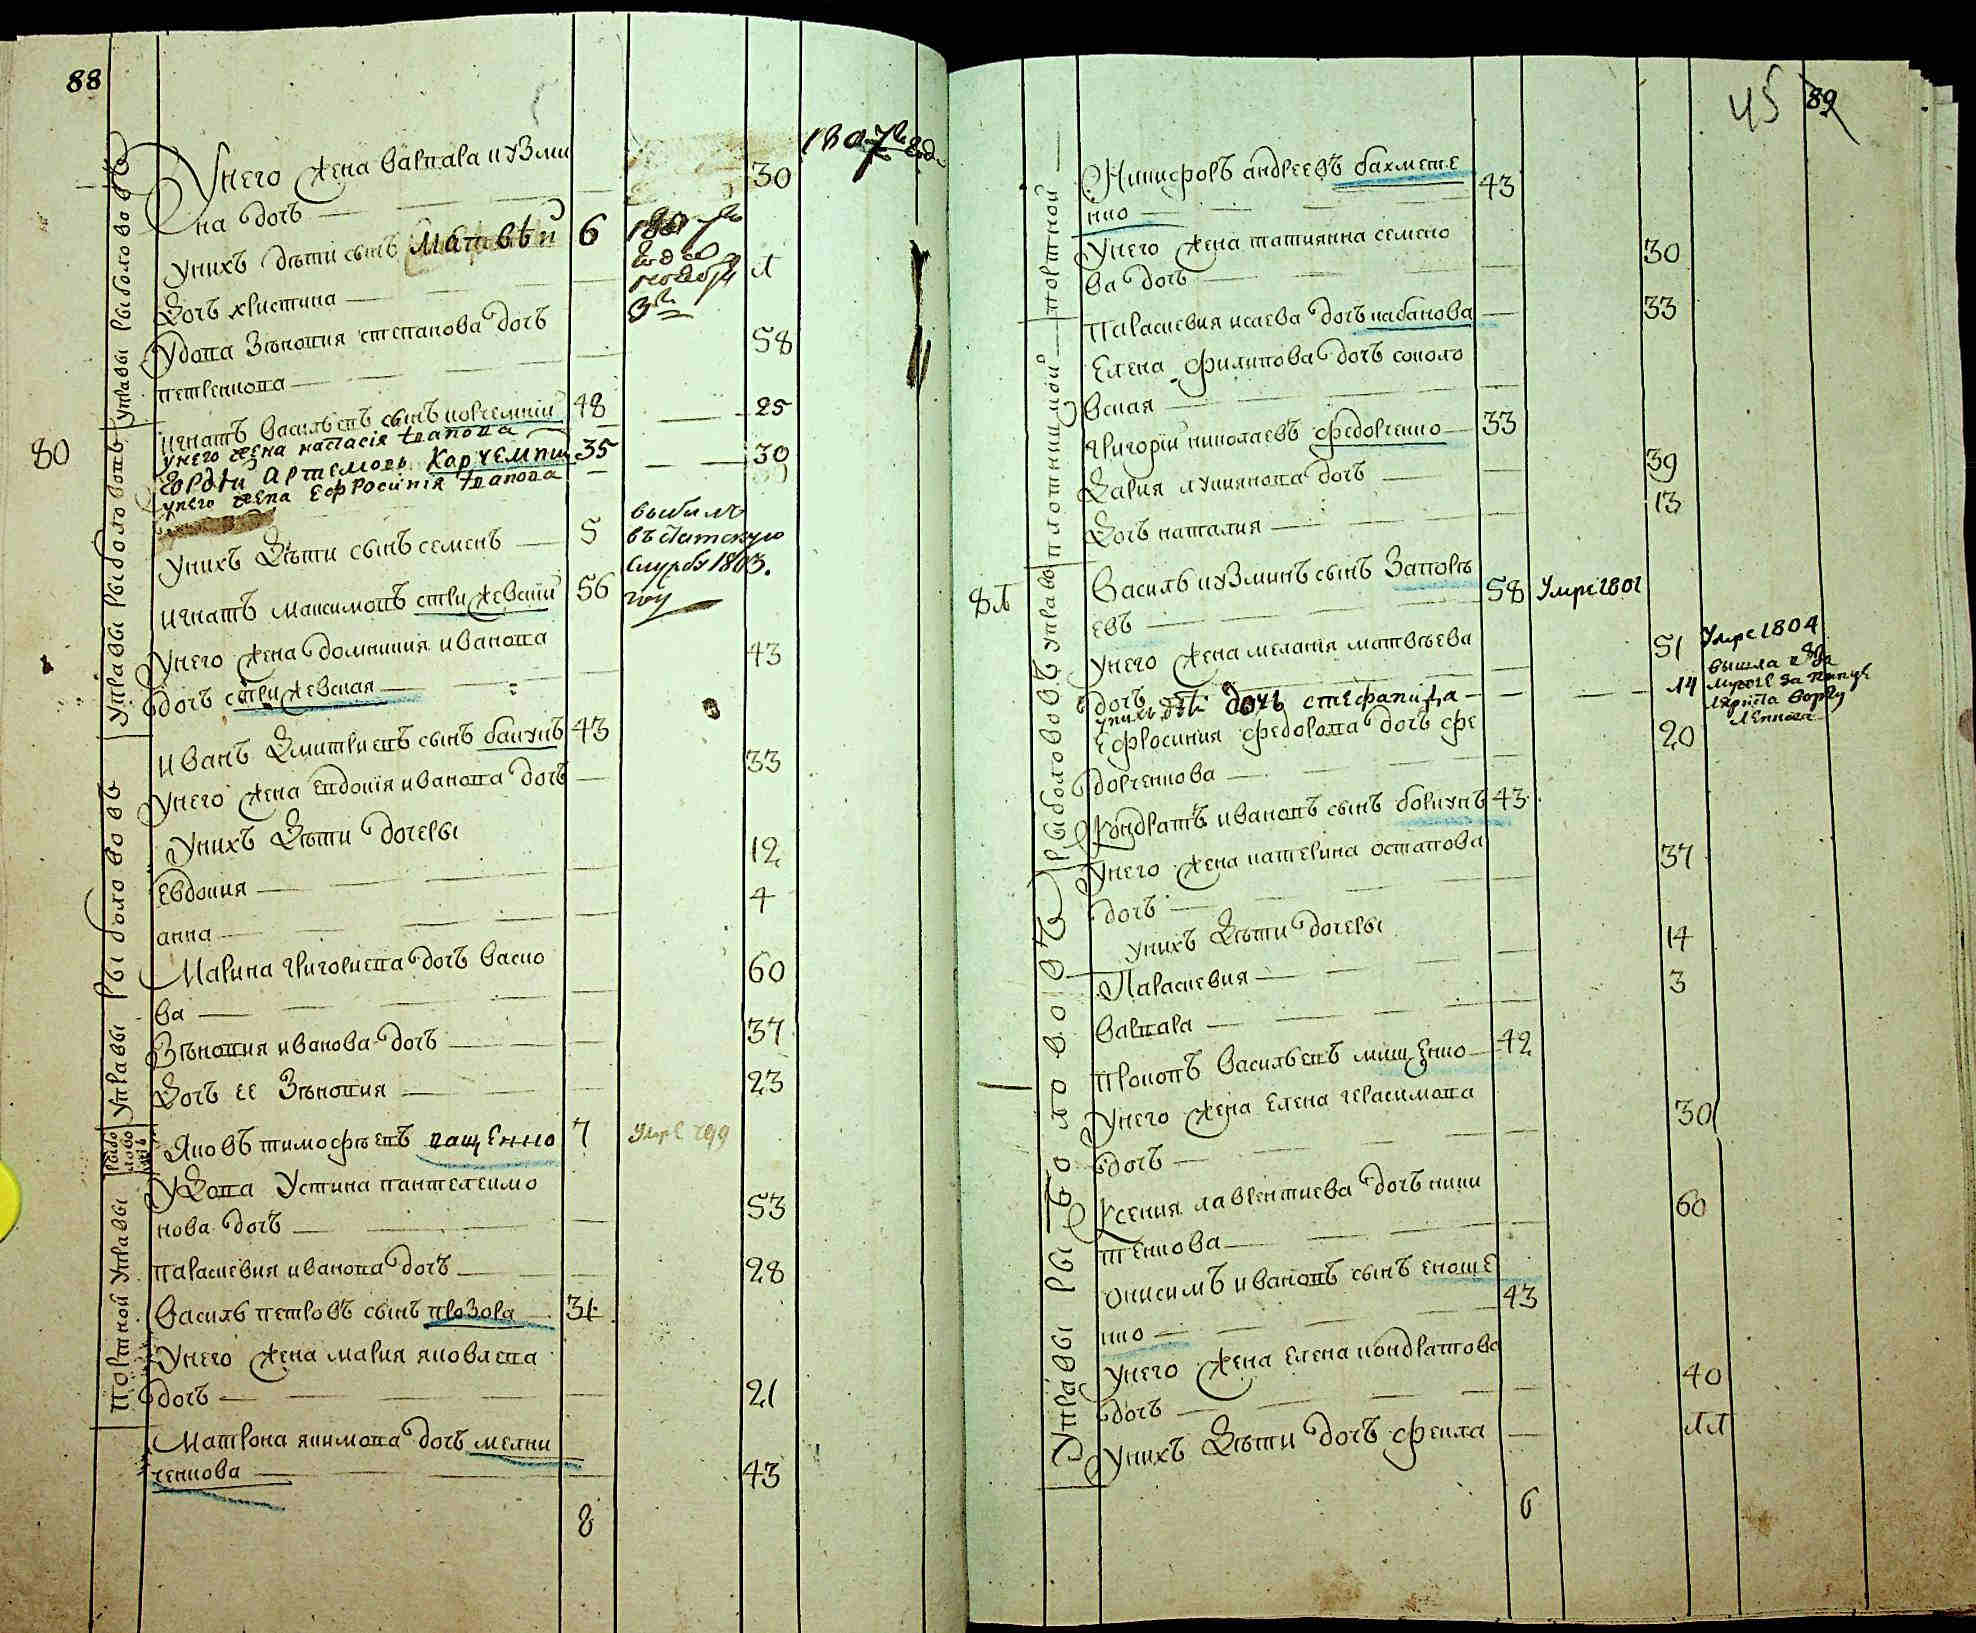 88
Унего жена варвара кузми
на дочь
30
1807го году
Унихъ дѣти сынъ Матвѣй 6
Дочь христина
Удова Зѣновия степанова дочь
петренкова
58
80
игнатъ василъевъ сынъ корчемний 48
унего жена настасія иванова
25
Гордѣй Артемовъ Карчемни 35
унего жена Ефросинія иванова
30
Унихъ Дѣти сынъ семенъ 5
выбилъ
въ статскую
служб 1803.
году
игнатъ максимовъ стрижевский 56
Унего жена домникия иванова
дочь стрижевская
43
иванъ Дмитриевъ сынъ бакунъ 43
Унего жена Евдокія иванова дочь
33
Унихъ Дѣти дочеры
Евдокия
12
анна
4
Марина григориева дочь васко
ва
60
Зѣновия иванова дочь
37
Дочь ее Зѣновия
23
Яковъ тимофѣевъ пащенко 7
Умре 799
Удова Устина пантелеимо
нова дочь
53
параскевия иванова дочь
28
василь петровъ сынъ прозора 31
Унего жена мария яковлева
дочь
21
Матрона якимова дочь мелни
ченкова
43
8
Управы рыболововъ
Управы рыболововъ
Управы рыболововъ
рыбо
лово
въ
Портной управы
45 89
Никифоръ андреевъ бахмете
нко
43
Унего жена татиянна семено
ва дочь
30
Параскевия исаева дочь кабанова
33
Елена филипова дочь соколо
вская
григорий николаевъ федорченко 33
Дария лукиянова дочь
39
Дочь наталия
13
Василь кузминъ сынъ Запорѣ
евъ
58 Умре 1801
Унего жена мелания матвѣева
дочь
51 Умре 1804
унихъ дѣ: дочь стефанида
14
вышла
Ефросиния федорова дочь фе
дорченкова
20
Кондратъ ивановъ сынъ боркунъ 43
Унего жена катерина остапова
дочь
37
унихъ Дѣти дочеры
Параскевия
14
варвара
3
Прокопъ василъевъ мищенко 42
Унего жена Елена герасимова
дочь
30
Ксения лаврентиева дочь ники
тенкова
60
Онисимъ ивановъ сынъ еноше
нко
43
Унего жена Елена кондратова
дочь
40
Унихъ Дѣти дочь фекла
11
6
портной
плотницкой
Управы рыболововъ
Управы рыболововъ